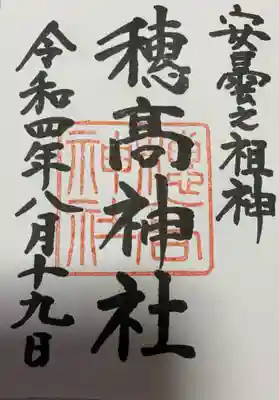 安曇之祖神
穂高神社
令和四年八月十九日
穂高
神社